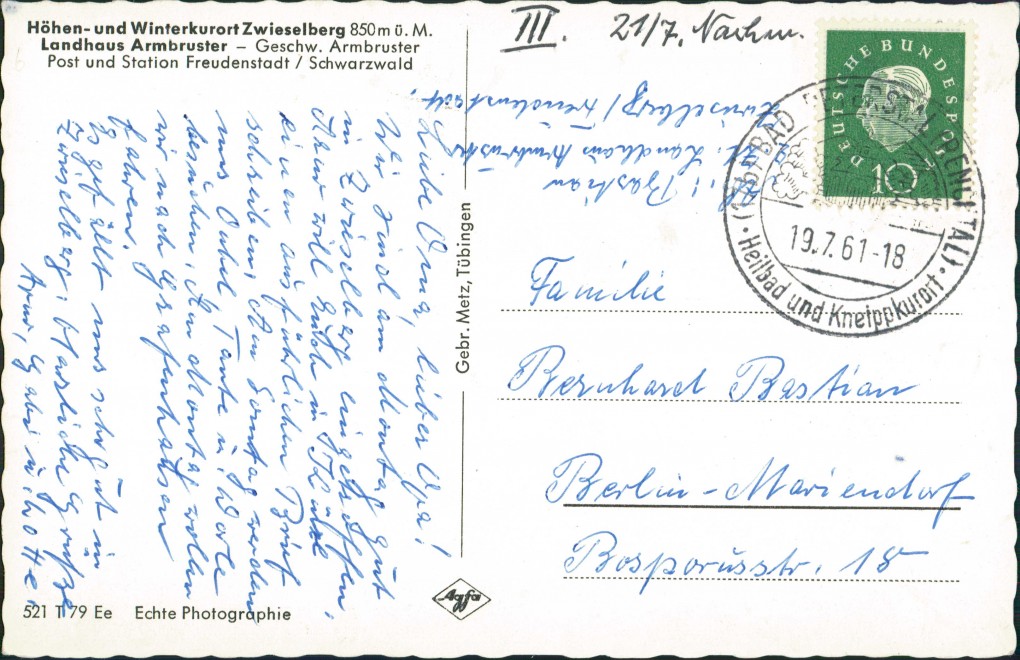 Höhen- und Winterkurort Zwieselberg 850m ü. M.
Landhaus Armbruster – Geschw. Armbruster
Post und Station Freudenstadt / Schwarzwald
III. 21/7. Nachm.
Bastian
Landhaus Armbruster
Zwieselberg / Freudenstadt.
DEUTSCHE BUNDESPOST
10
BAD
19.7.61-18
Heilbad und Kneippkurort
Liebe Oma, lieber Opa!
Wir sind am Montag gut
in Zwieselberg eingetroffen.
will Euch in
einen ausführlichen Brief
schreiben. Am Sonntag werden
uns Onkel, Tante u.
besuchen. Am Montag wollen
wir nach Grafenhausen
fahren.
Es gefällt uns sehr gut in
Zwieselberg. Herzliche Grüße
Gebr. Metz, Tübingen
Familie
Bernhard Bastian
Berlin-Mariendorf
Bosporusstr. 18
521 T 79 Ee Echte Photographie
Agfa